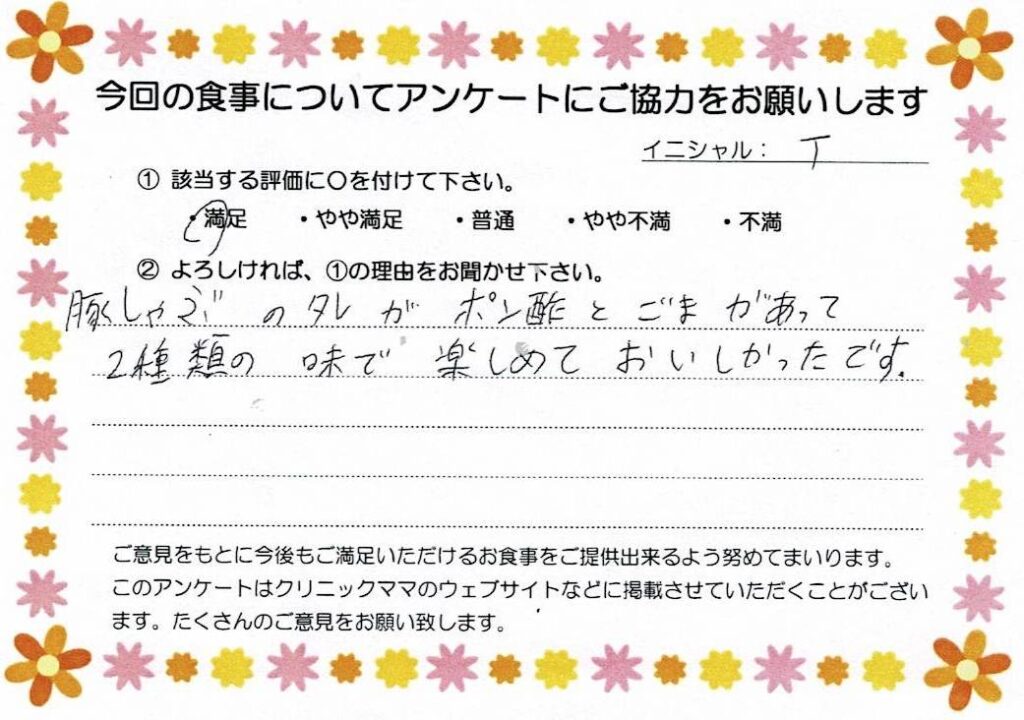 今回の食事についてアンケートにご協力をお願いします
イニシャル： T
① 該当する評価に〇を付けて下さい。
・満足 ・やや満足 ・普通 ・やや不満 ・不満
② よろしければ、①の理由をお聞かせ下さい。
豚しゃぶのタレがポン酢とごまがあって
2種類の味で楽しめておいしかったです.
ご意見をもとに今後もご満足いただけるお食事をご提供出来るよう努めてまいります。
このアンケートはクリニックママのウェブサイトなどに掲載させていただくことがござい
ます。たくさんのご意見をお願い致します。